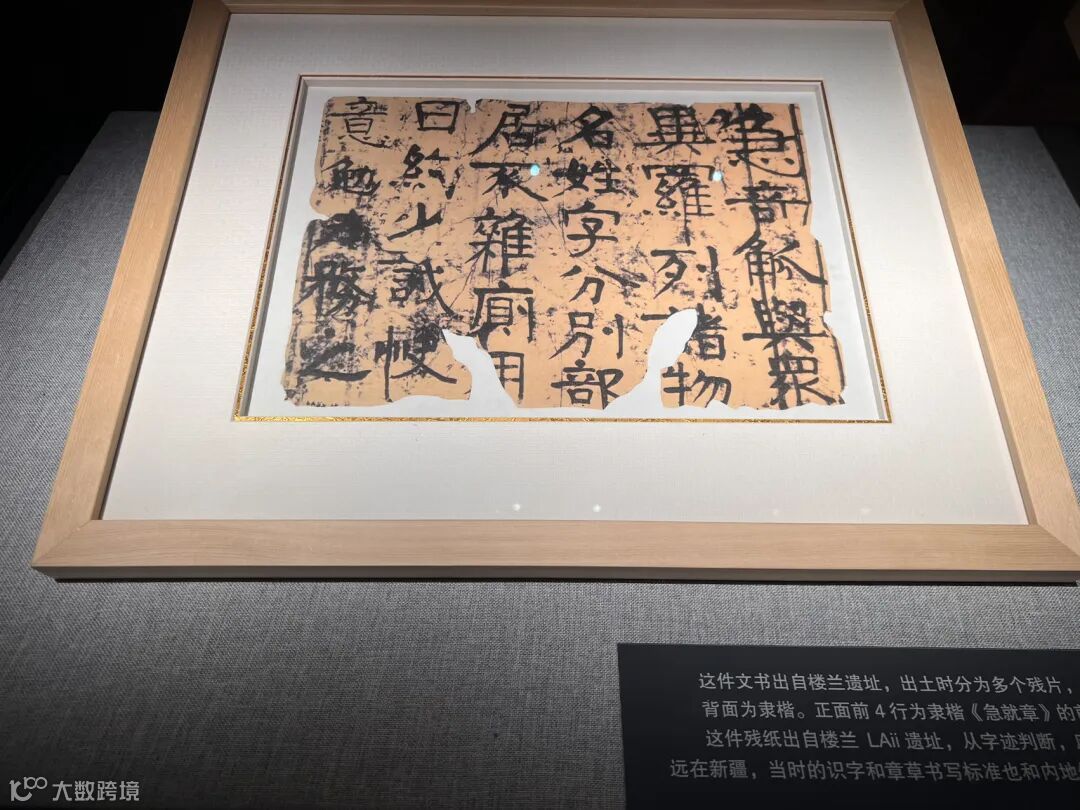 急奇觚與衆
異羅列諸物
名姓字分別部
居不雜廁用
日約少誠快
意勉力務之
这件文书出自楼兰遗址，出土时分为多个残片，
背面为隶楷。正面前 4 行为隶楷《急就章》的
这件残纸出自楼兰 LAii 遗址，从字迹判断，
远在新疆，当时的识字和章草书写标准也和内地
大数跨境